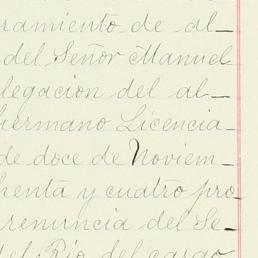 ramiento de al_
del Señor Manuel
legacion del al_
hermano Licencia_
de doce de Noviem_
henta y cuatro pro_
renuncia del Se_
del Rio del cargo